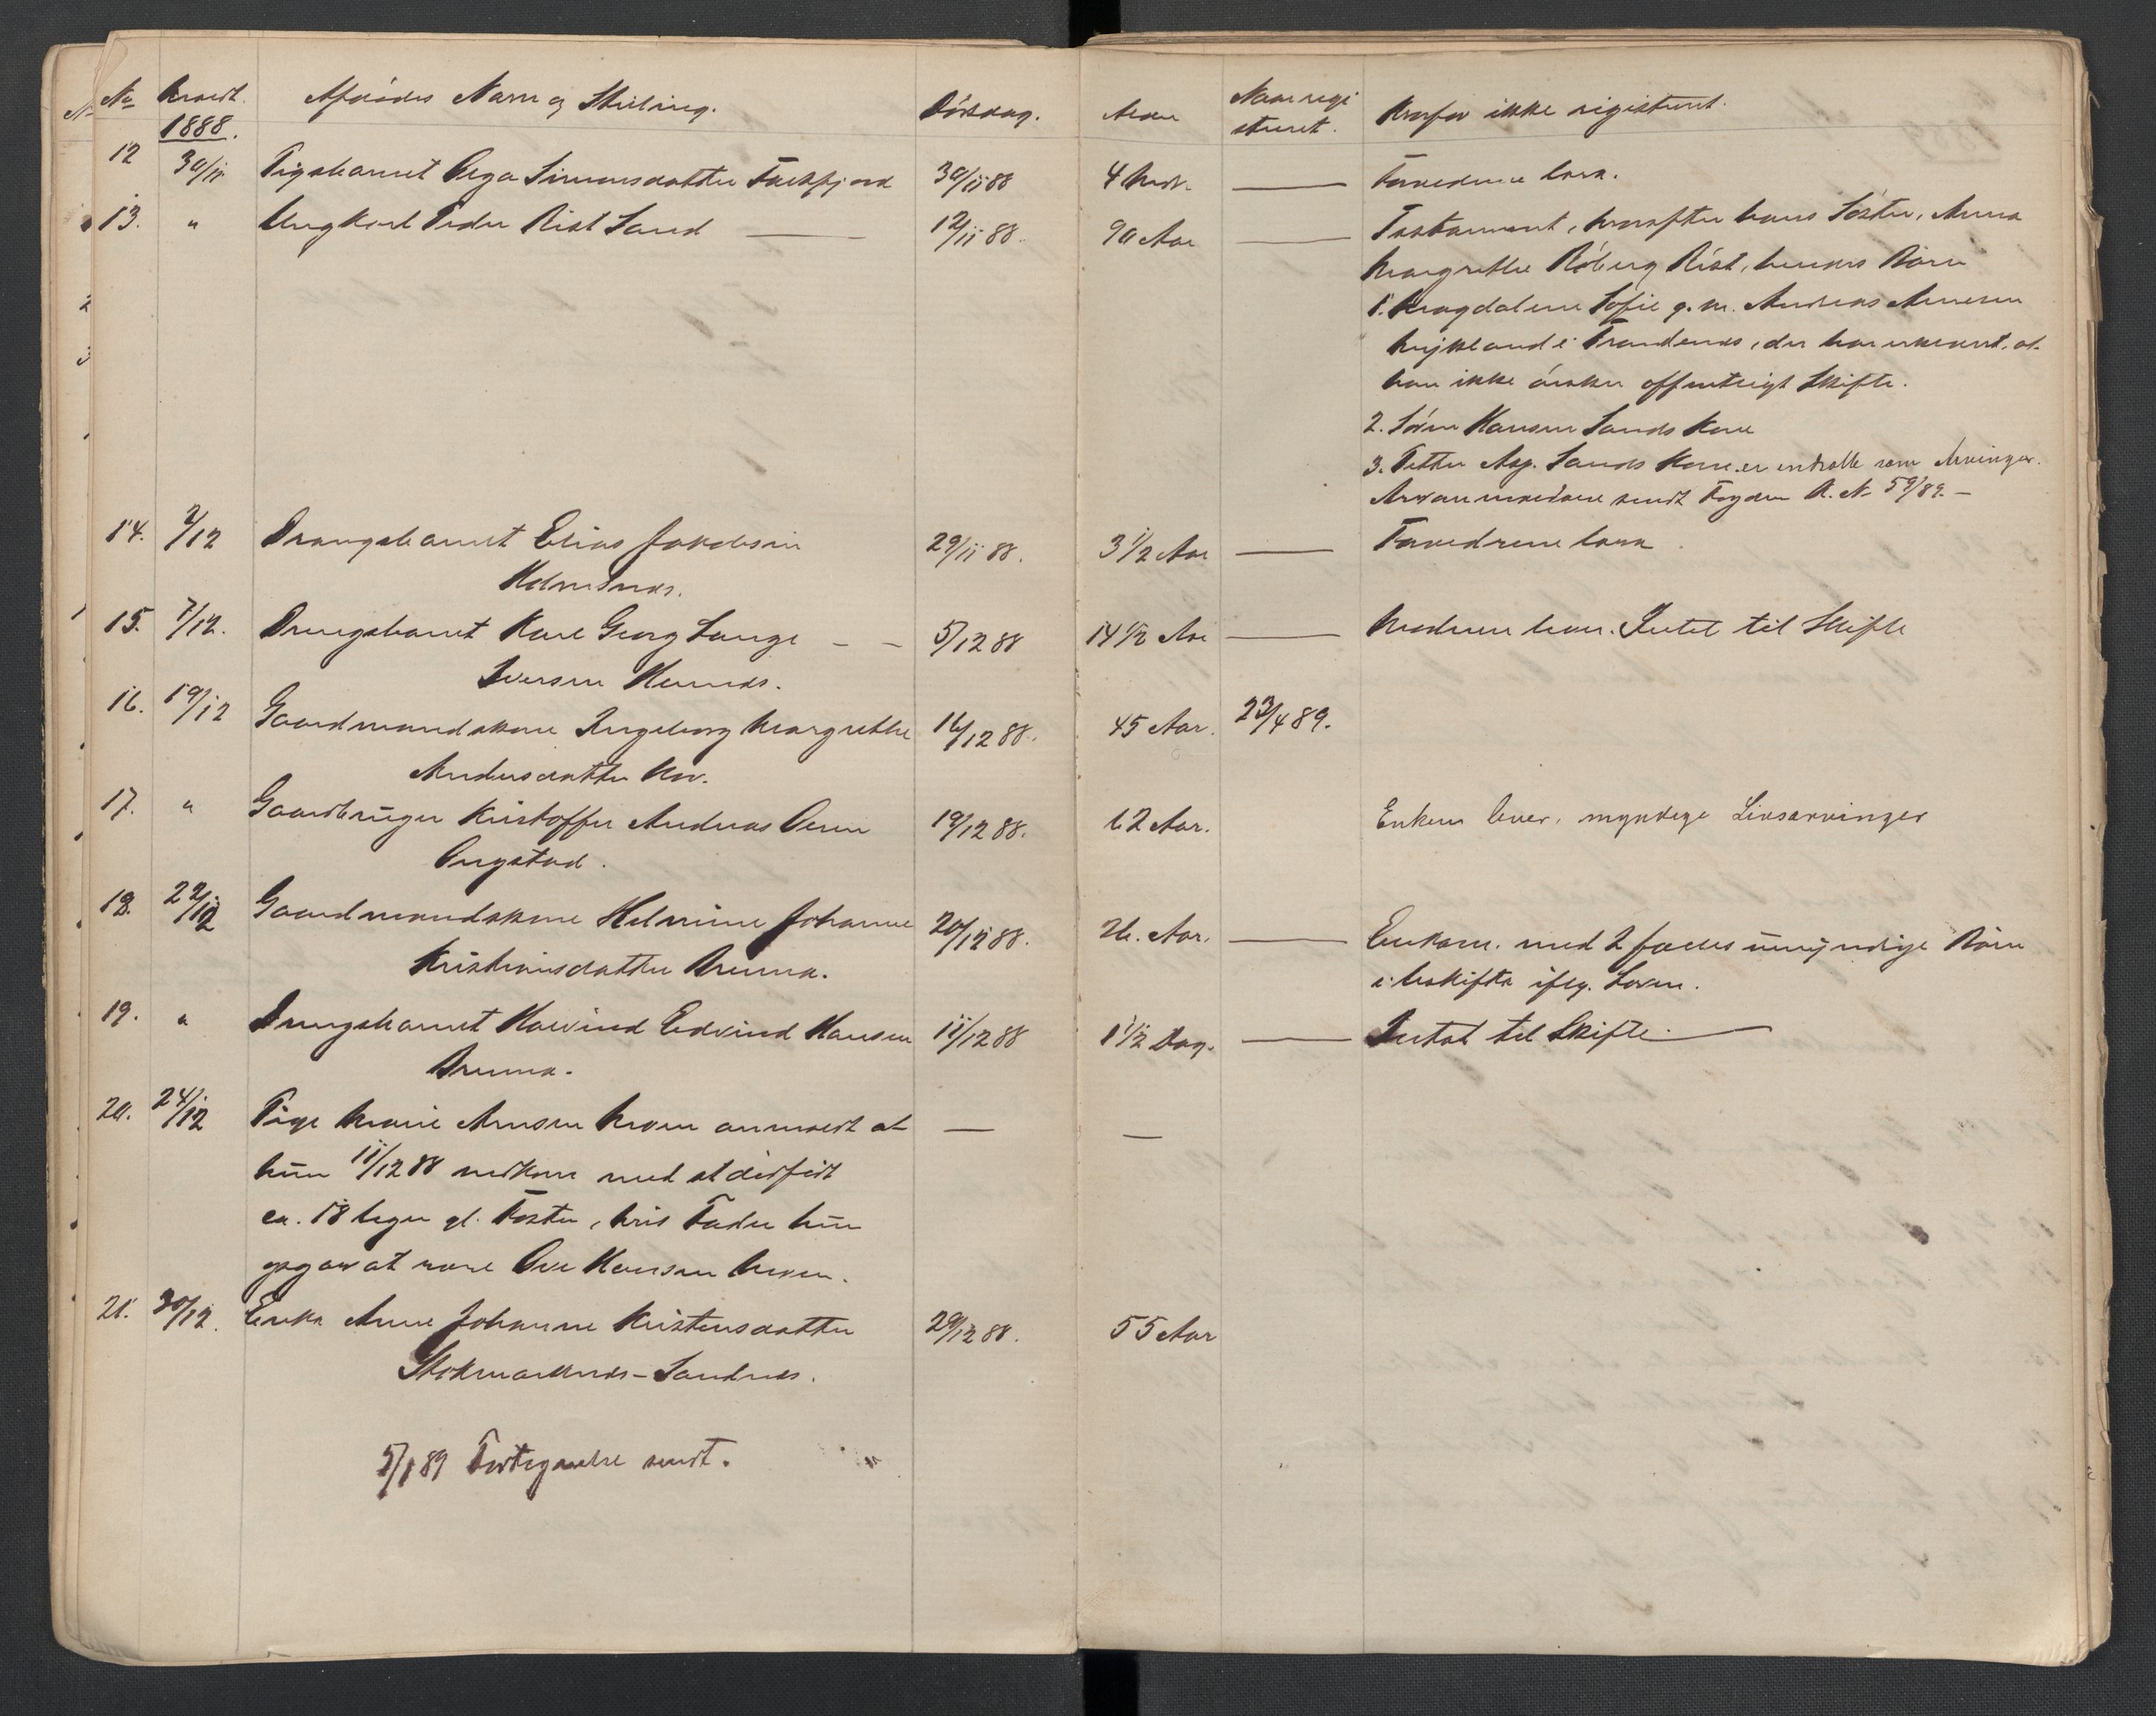 No Anmeldt. Afdødes Navn og Stilling. Dødsdag. Alder Naar regi Hvorfor ikke registreret.
1888. streret.
12 30/11 Pigebarnet Olga Simonsdatter 30/11 88 4 — Forældrene leve.
13. " Ungkarl Peder Rist Sand — 12/11 88. 90 Aar — Testament, hvorefter hans Søster, Anna
Margrethe Røberg Rist, hendes Børn
1. Magdalene Sofie g. m. Andreas Arnesen
i Trondenes, der har erkjendt, at
han ikke ønsker offentligt Skifte.
2. Sören Hansen Sands Kone
3. Petter Asp. Sands Kone er indsatte som Arvinger.
sendt Fogden A. No 59/89. —
14. 2/12 Drengebarnet Elias Jakobsen 29/11 88. 3 1/2 Aar — Forældrene leve.
15. 7/12. Drengebarnet Karl Georg Lange — — 5/12 88 14 1/2 Aar — Moderen lever. Intet til Skifte
Iversen
16. 19/12 Gaardmandskone Ingeborg Margrethe 16/12 88. 45 Aar. 23/4 89.
Andersdatter
17. " Gaardbruger Kristoffer Andreas Olsen 19/12 88. 62 Aar. Enken lever, myndige Livsarvinger
Ongstad.
18. 22/12 Gaardmandskone Helmine Johanne 20/12 88. 26. Aar. — Enkem. med 2 fælles umyndige Børn
Kristiansdatter Brenna. i Uskifte iflg. Loven.
19. " Drengebarnet Halvind Edvind Hansen 11/12 88 1 1/2 Dag. — Intet til Skifte. —
Brenna.
20. 24/12 Pige Marie Arnsen anmeldt at — —
hun 11/12 88 nedkom med et dödfödt
ca. 18 Uger gl. Foster, hvis Fader hun
opgav at være Ole Hansen
21. 30/12. Enke Anne Johanne Kristensdatter 29/12 88. 55 Aar
Stokmarknes - Sandnes.
5/1 89 Fortegnelse sendt.